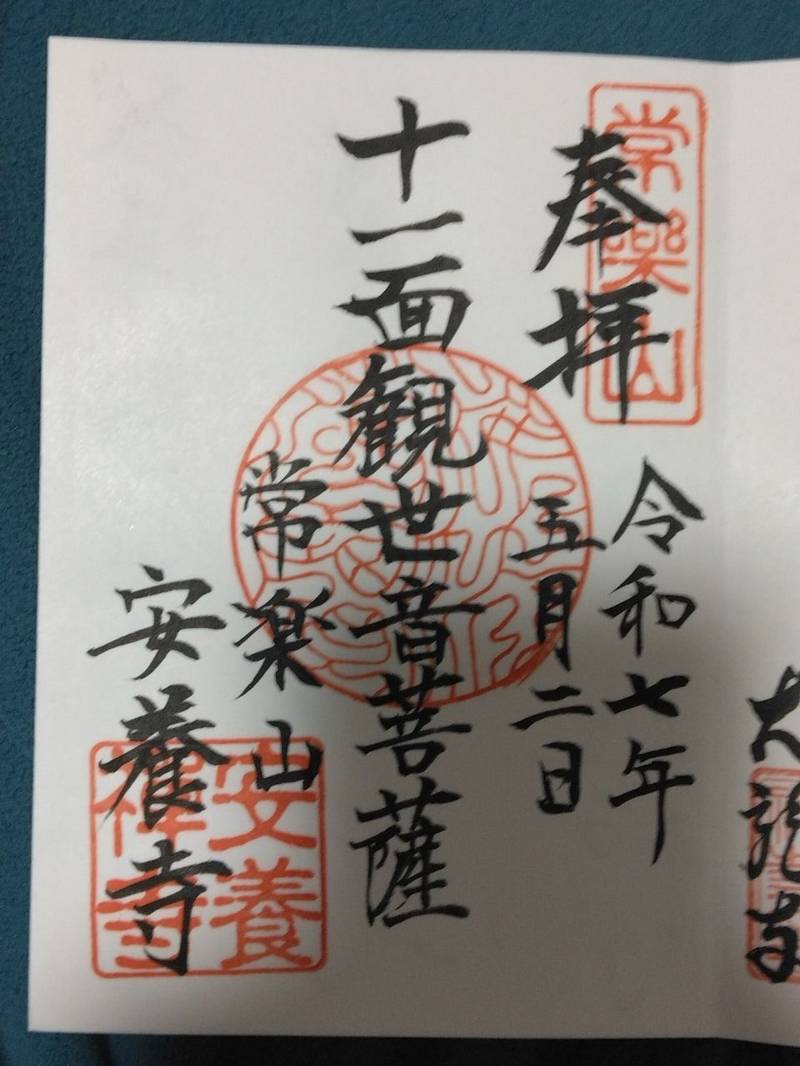 奉拝
常樂山
令和七年
五月二日
十一面観世音菩薩
常楽山
安養寺
安養
禅寺